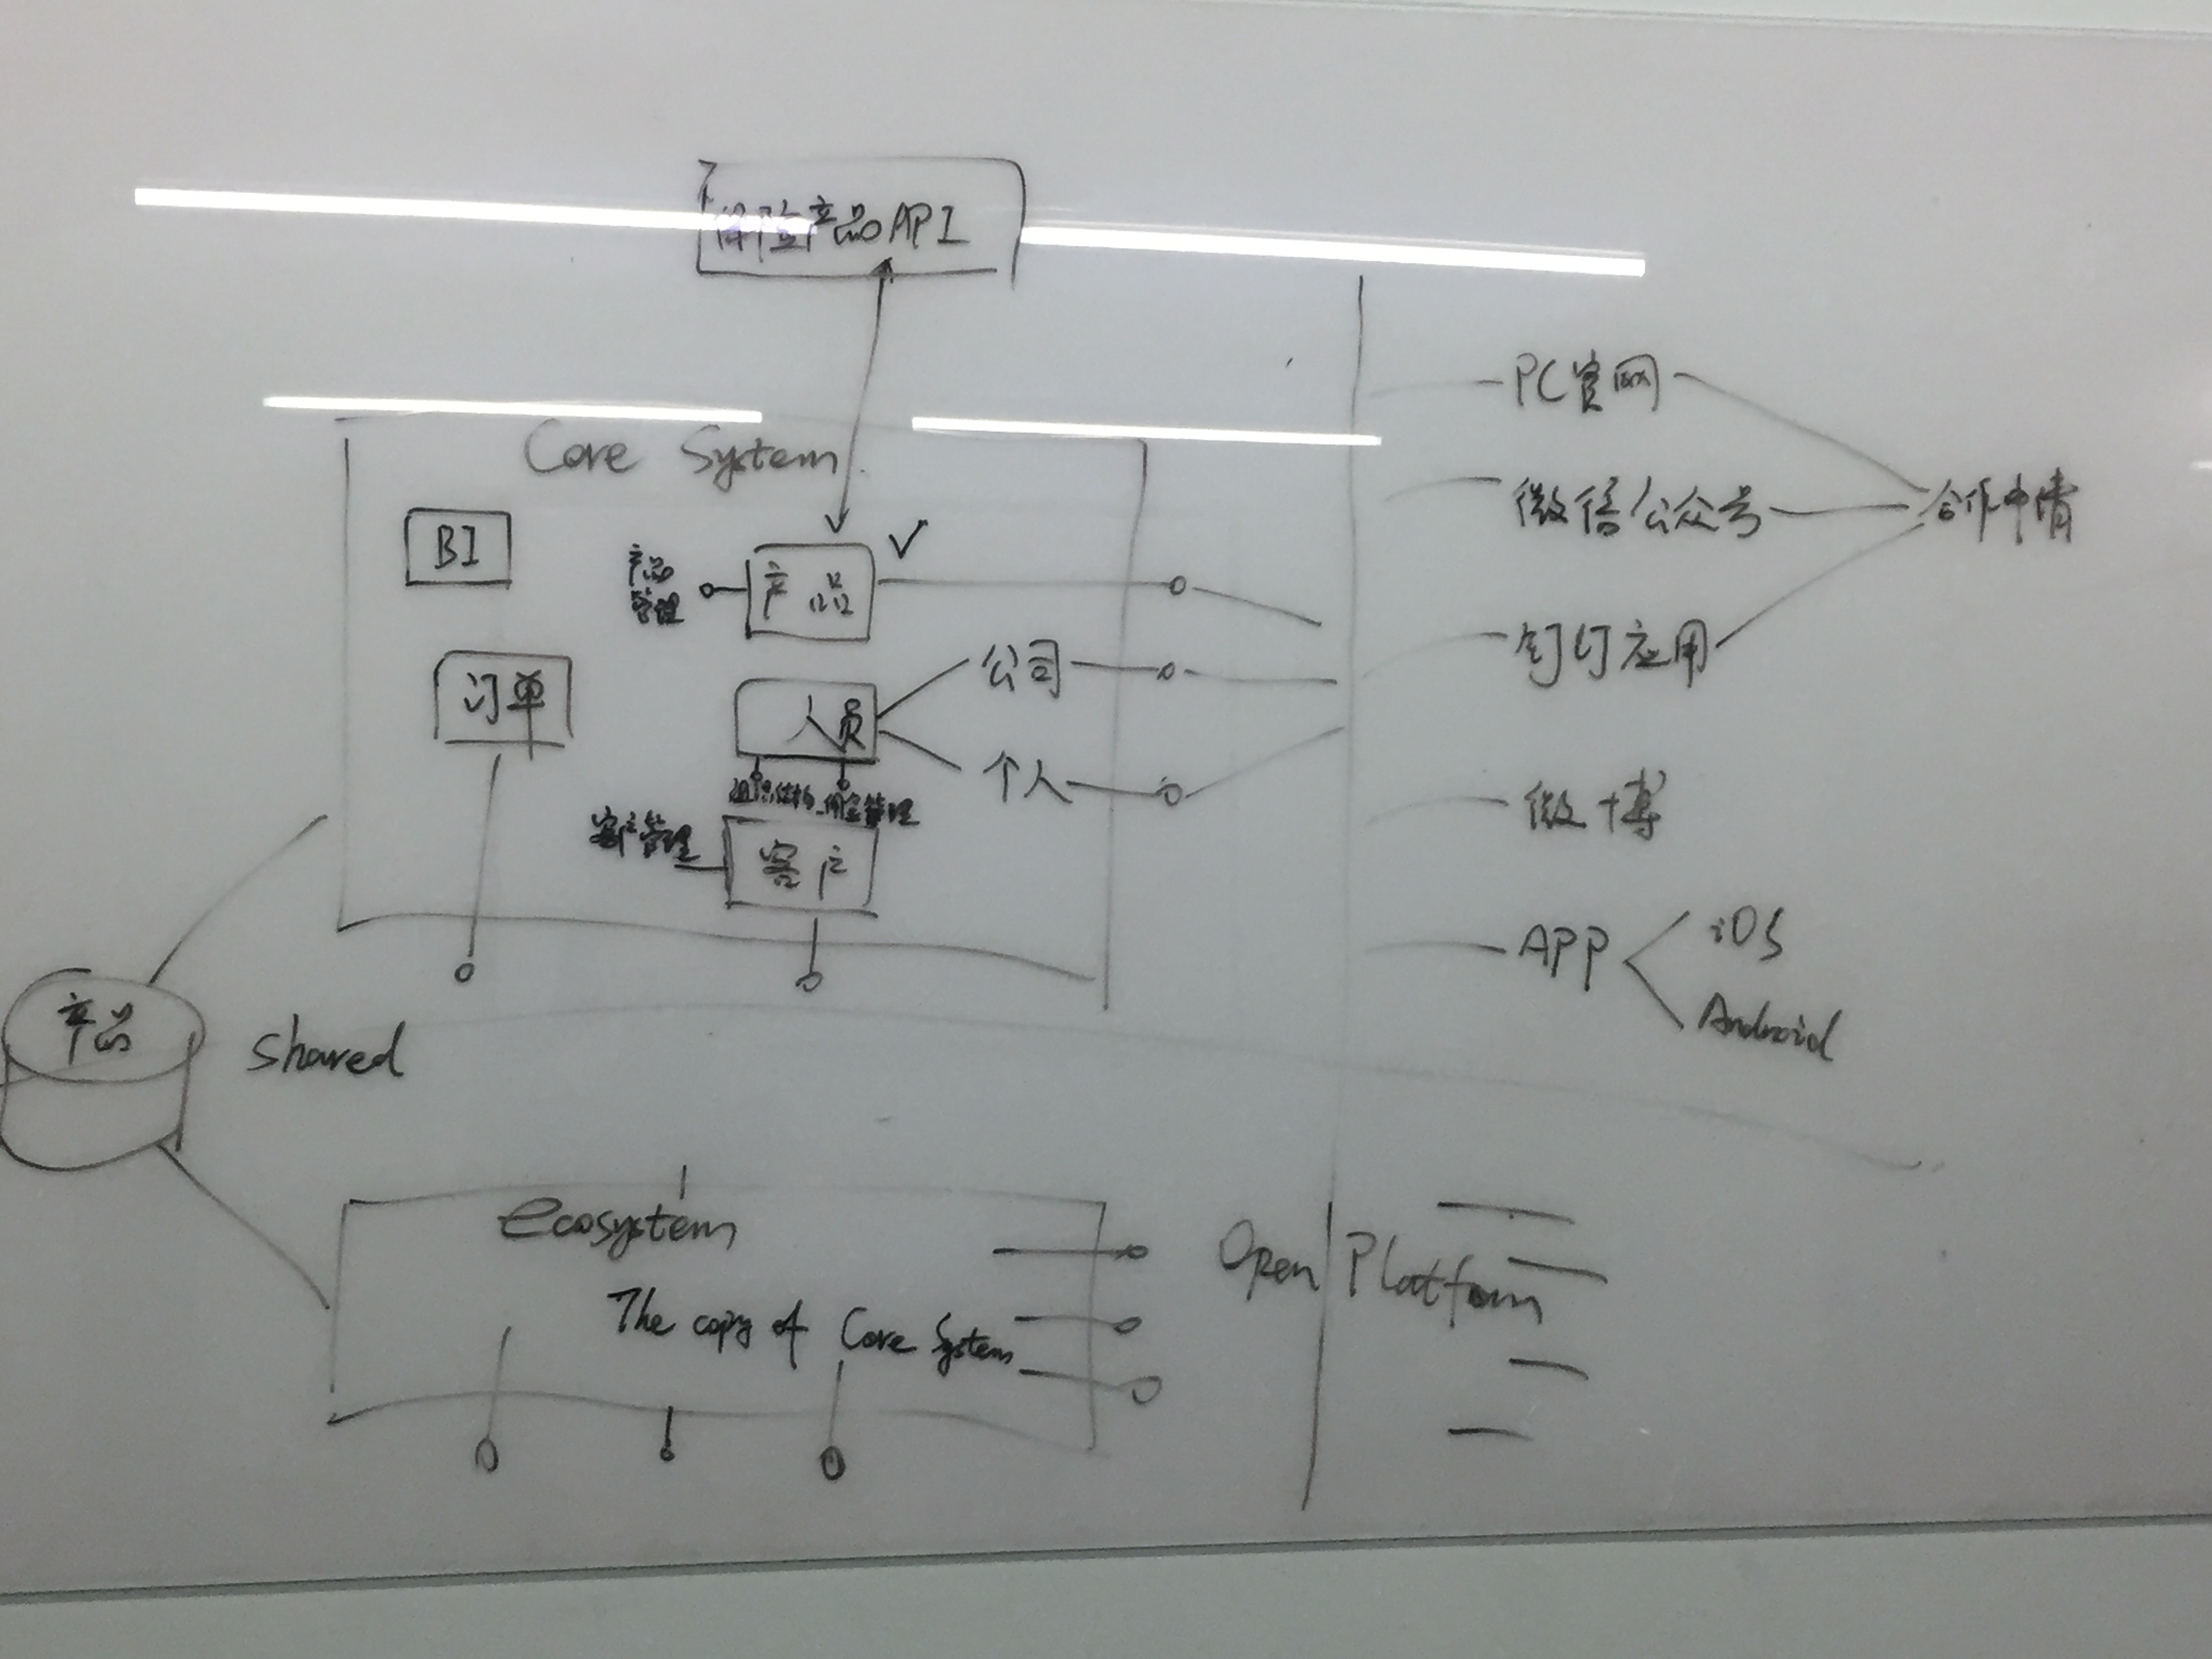 保险产品API
Core System
BI
产品
管理
产品
订单
人员
公司
个人
组织结构
佣金管理
客户管理
客户
PC官网
微信公众号
钉钉应用
微博
APP
iOS
Android
合作申请
产品
shared
ecosystem
The copy of Core System
Open Platform